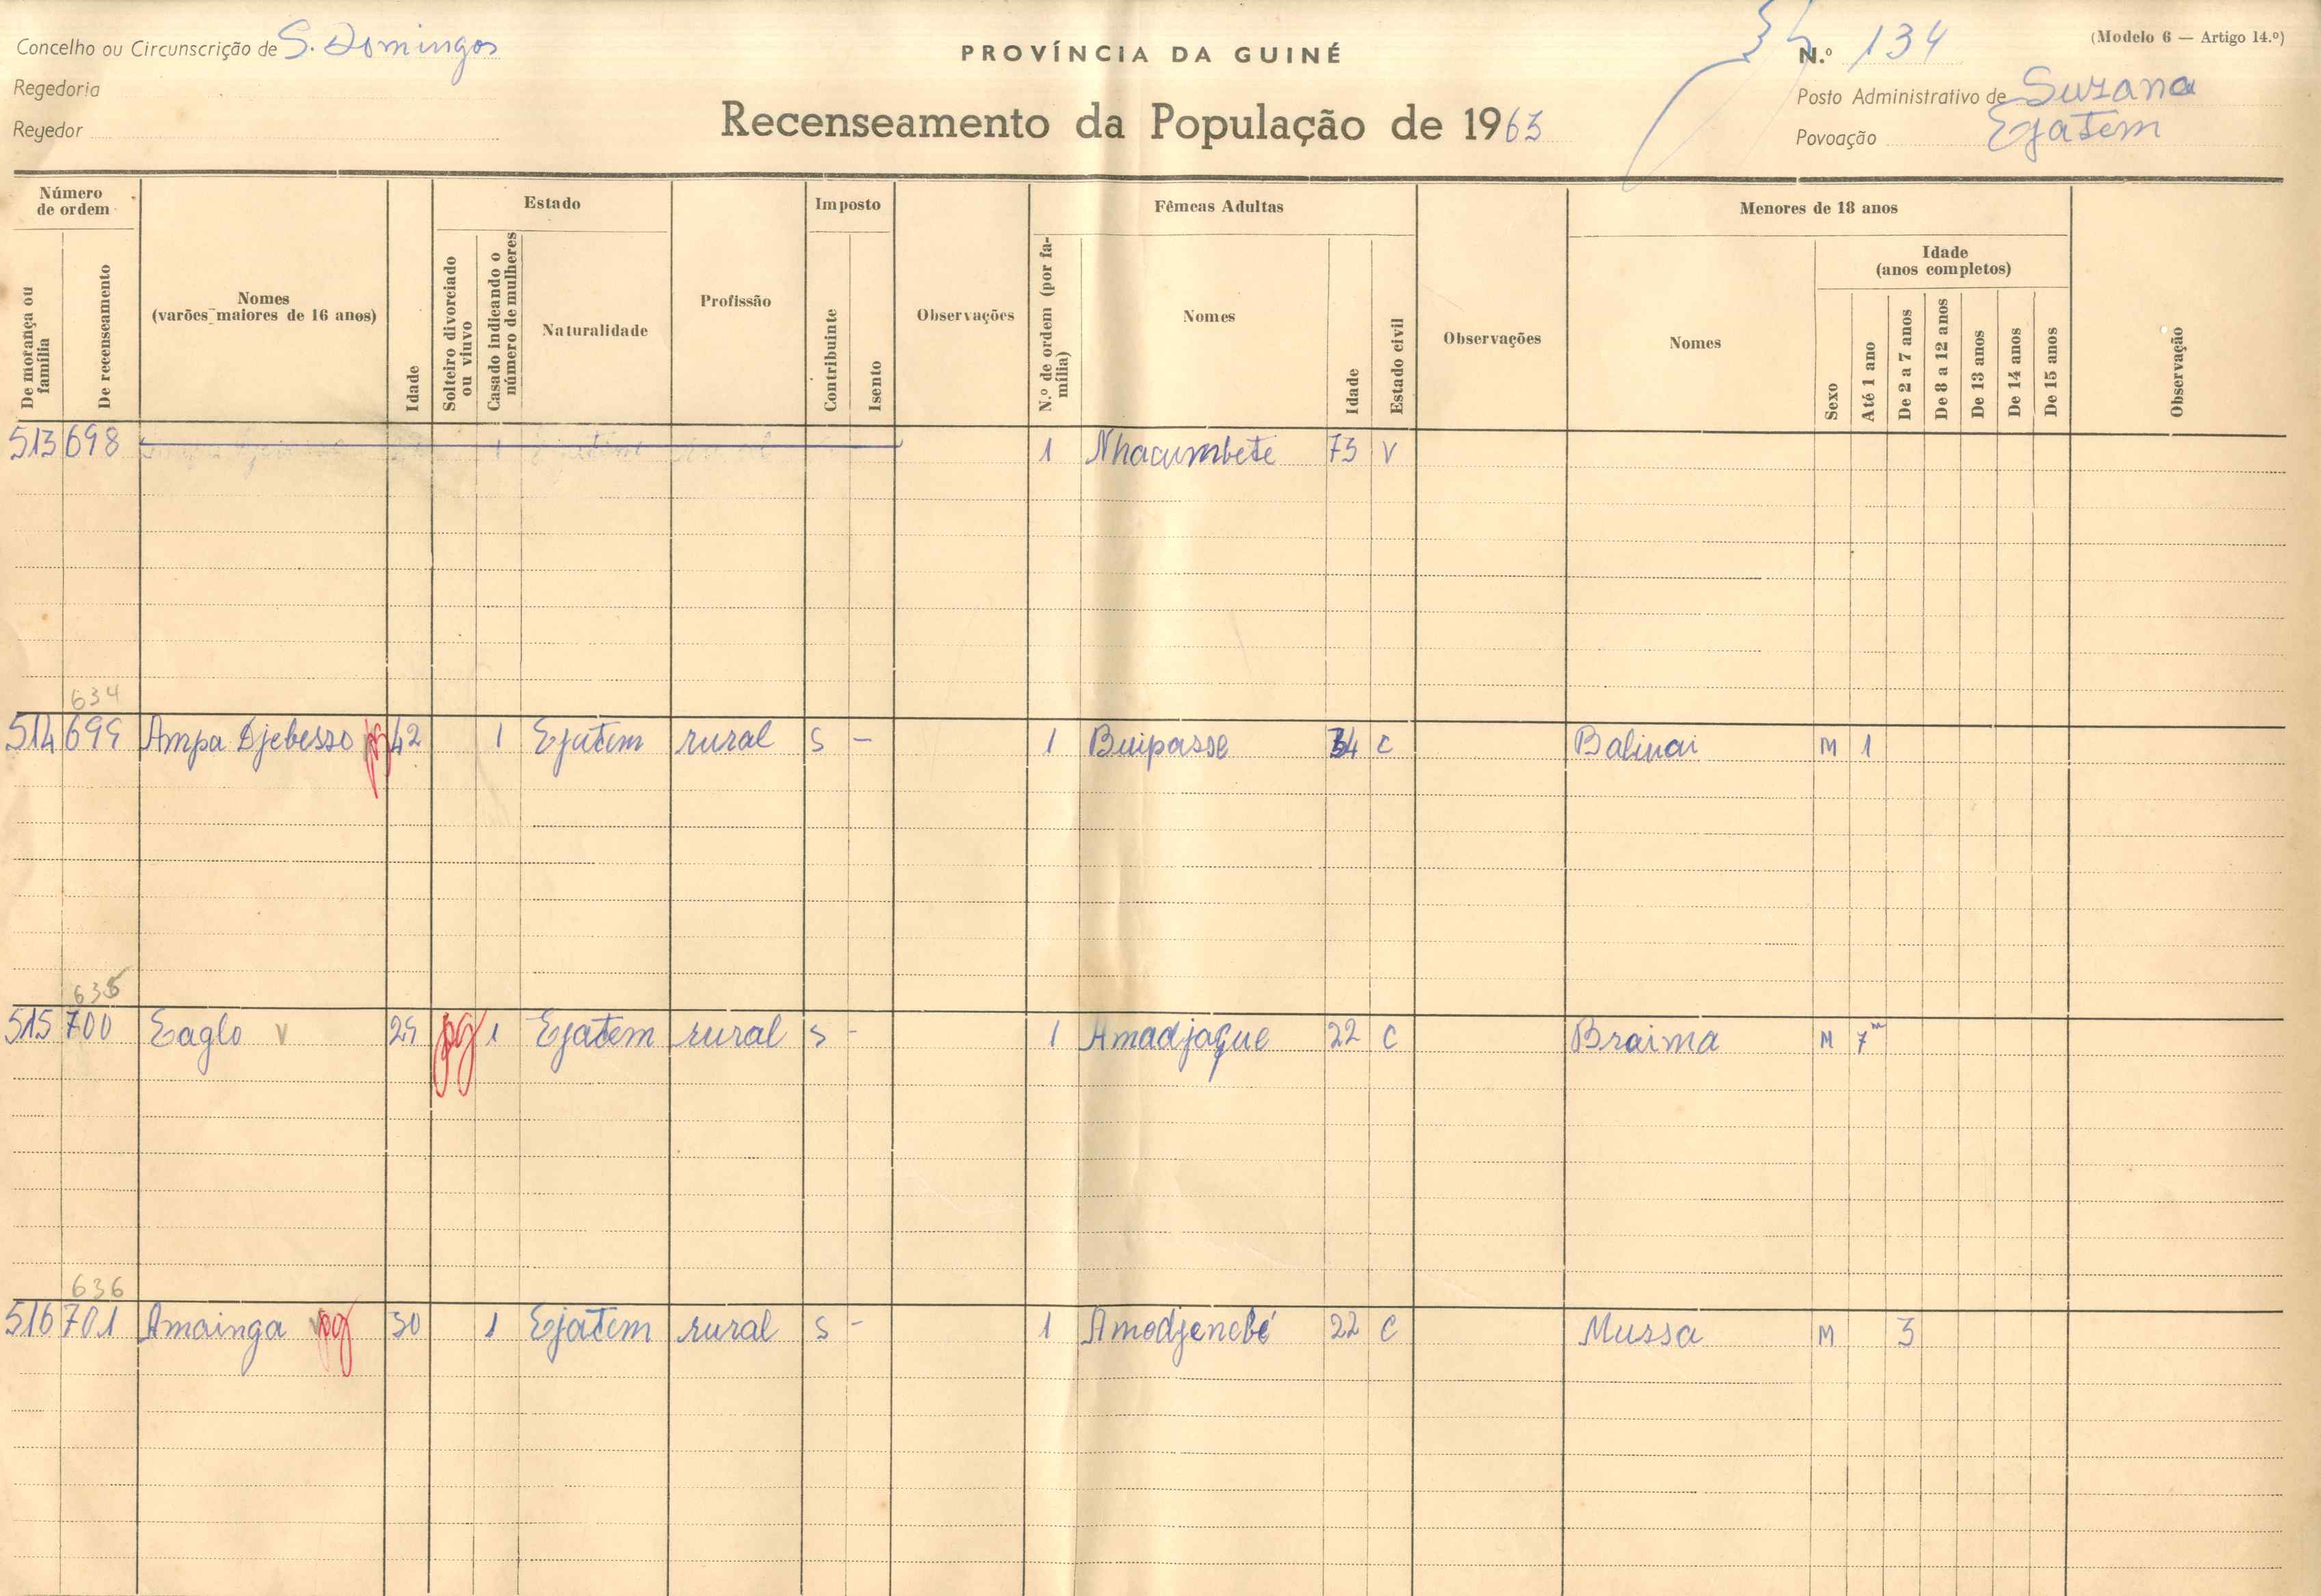 Concelho ou Circunscrição de S. Domingos
PROVÍNCIA DA GUINÉ
N.º 134
(Modelo 6 — Artigo 14.º)
Regedoria
Posto Administrativo de Suzana
Regedor
Recenseamento da População de 1963
Povoação Ejatem
Número de ordem
Estado
Imposto
Fêmeas Adultas
Menores de 18 anos
De morança ou família
De recenseamento
Nomes (varões maiores de 16 anos)
Idade
Solteiro divorciado ou viuvo
Casado indicando o número de mulheres
Naturalidade
Profissão
Contribuinte
Isento
Observações
N.º de ordem (por família)
Nomes
Idade
Estado civil
Observações
Nomes
Sexo
Idade (anos completos)
Até 1 ano
De 2 a 7 anos
De 8 a 12 anos
De 13 anos
De 14 anos
De 15 anos
Observação
513 698 1 1 Nhacumbete 73 V
634
514 699 Ampa Djebesso pg 42 1 Ejatem rural S - 1 Buipasse 34 C Balinai M 1
635
515 700 Eaglo V 29 pg 1 Ejatem rural S - 1 Amadjaque 22 C Braima M 7m
636
516 701 Amainga pg 30 1 Ejatem rural S - 1 Amodjenebé 22 C Mussa M 3